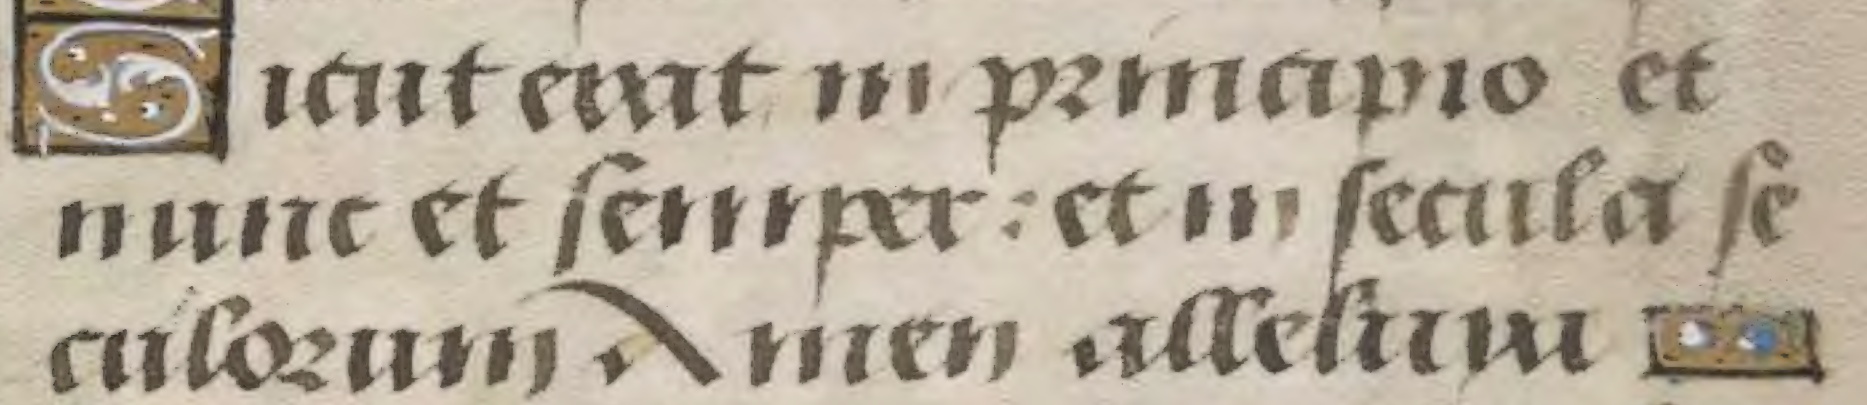 Sicut erat in principio et
nunc et semper : et in secula se
culorum Amen alleluia